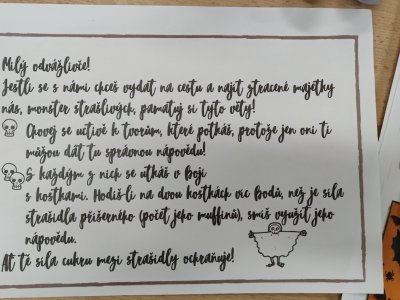 Milý odvážlivče!
Jestli se s námi chceš vydat na cestu a najít ztracené majetky
nás, monster strašlivých, pamatuj si tyto věty!
Chovej se uctivě k tvorům, které potkáš, protože jen oni ti
můžou dát tu správnou nápovědu!
S každým z nich se utkáš v boji
s kostkami. Hodíš-li na dvou kostkách víc bodů, než je síla
strašidla příšerného (počet jeho muffinů), smíš využít jeho
nápovědu.
Ať tě síla cukru mezi strašidly ochraňuje!